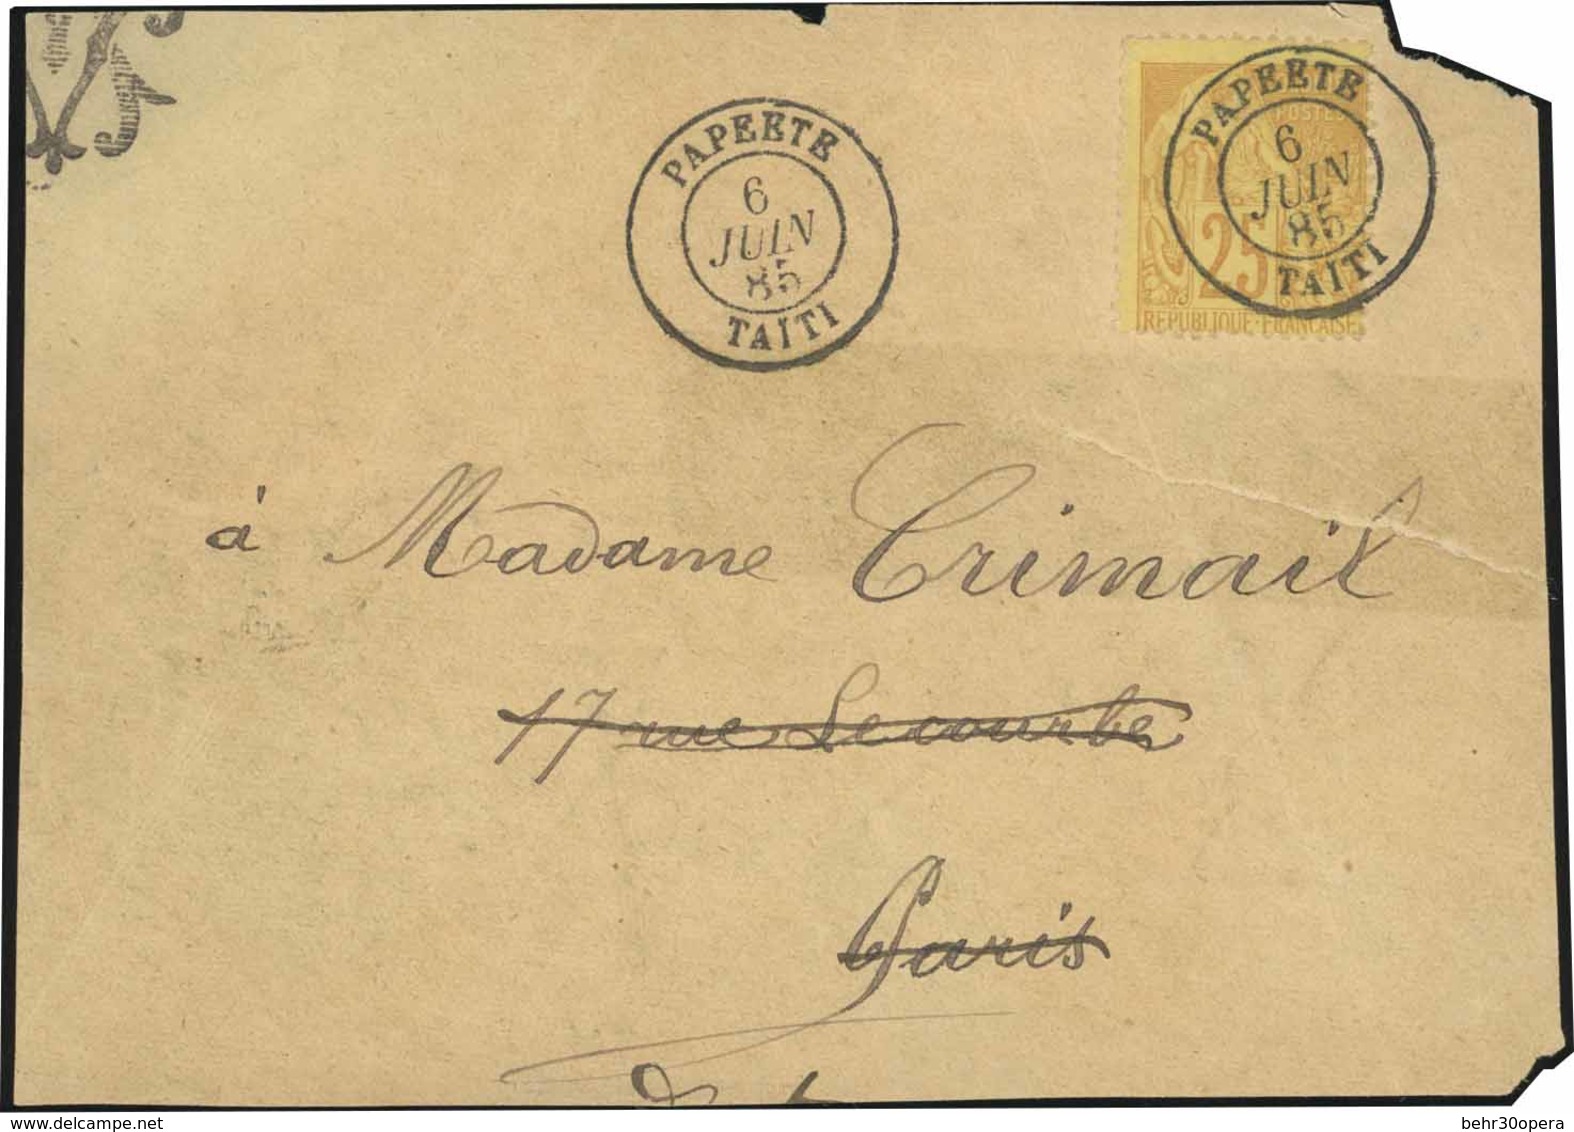 PAPEETE
6
JUIN
85
TAÏTI
POSTES
25
REPUBLIQUE·FRANCAISE
PAPEETE
6
JUIN
85
TAÏTI
à Madame Crimail
17 rue Lecourbe
Paris
delcampe.net
behr30opera